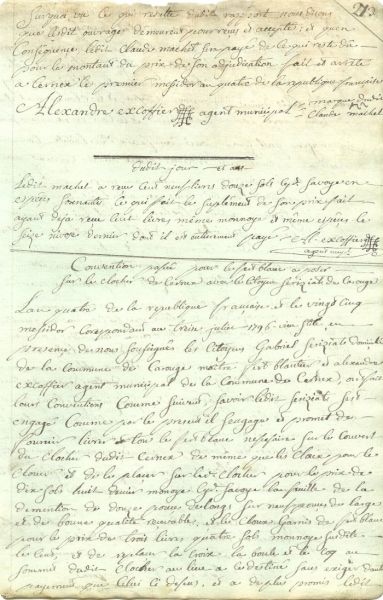 213
Surquoi, vu ce qui résulte dudit rapport nous disons
que ledit ouvrage demeure pour reçu et accepté; et qu'en
Conséquence ledit Claude machet sera payé de ce qui reste dû
pour le montant du prix de son adjudication fait et arrêté
à Cernex le premier messidor an quatre de la republique française
Alexandre excoffier agent municipal marque dudit
Claude machet
Dudit jour et an
Ledit machet a reçu cent neuf livres douze sols de Savoye en
espèces sonnantes ce qui fait le suplément de son prix fait
ayant déja reçu huit livres même monnoye et même espèces le
seize nivose dernier dont il est entierement payé Al excoffier
agent mupl
Convention passée pour le fer blanc à poser
sur le clocher de Cernex avec le Citoyen de Carouge
L'an quatre de la republique française et le vingt cinq
messidor Corespondant au treize juillet 1796 vieu stile, en
presence de nous soussignés les Citoyens Gabriel
de la Commune de Carouge maitre ferblantier et alexandre
excoffier agent municipal de la Commune de Cernex, ont fait
leurs Conventions Comme suivent, savoir ledit s'est
engagé Comme par le present il s'engage et promet de
fournir livrer tout le fer blanc nessesaire sur le Couvert
du Clocher dudit Cernex de même que les Cloux pour le
Clouer et de le placer sur led. Clocher pour le prix de
dix sols huit denier monoye de Savoye la feuille de la
dimention de douze pouces de long sur neuf pouces de large
et de bonne qualité recevable, et les Cloux garnis de fer blanc
pour le prix de trois livres quatre sols monnoye susdite
le Cent; et de replacer la Croix la boule et le coq au
sommet dudit Clocher au lieu à ce destiné sans exiger d'autre
payement que celui cy dessus, et a de plus promis ledit